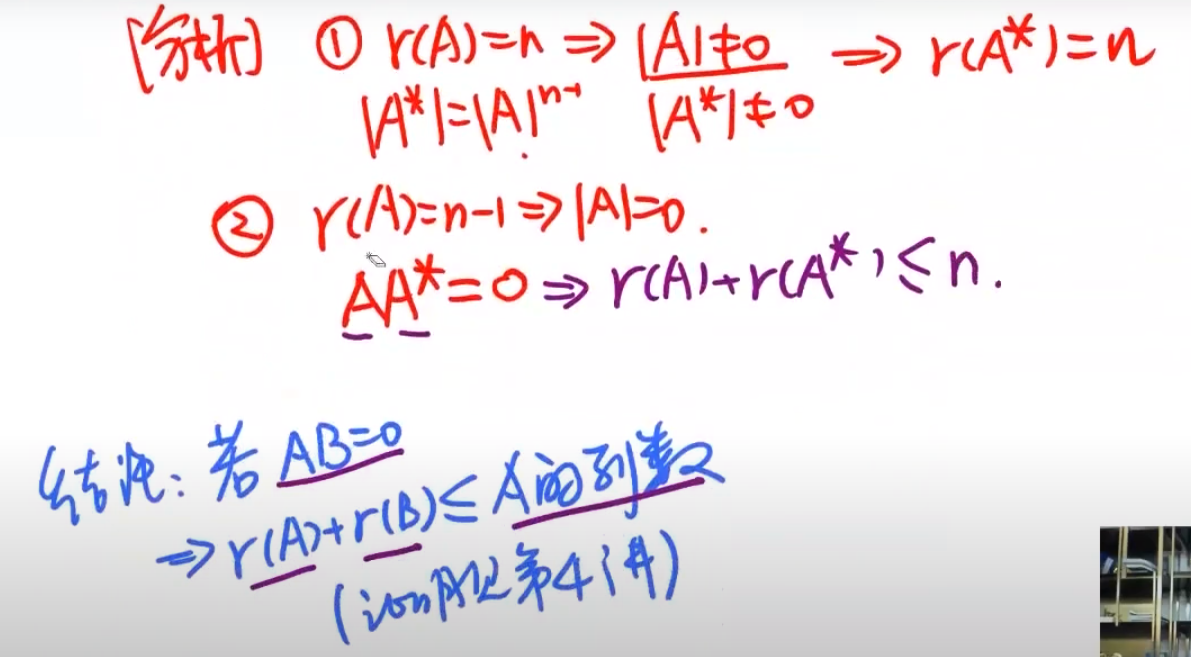 [分析] ① r(A)=n ⇒ |A|≠0 ⇒ r(A*)=n
|A*|=|A|ⁿ⁻¹ |A*|≠0
② r(A)=n-1 ⇒ |A|=0.
AA*=0 ⇒ r(A)+r(A*)≤n.
结论: 若 AB=0
⇒ r(A)+r(B)≤A的列数
(证明见第4讲)